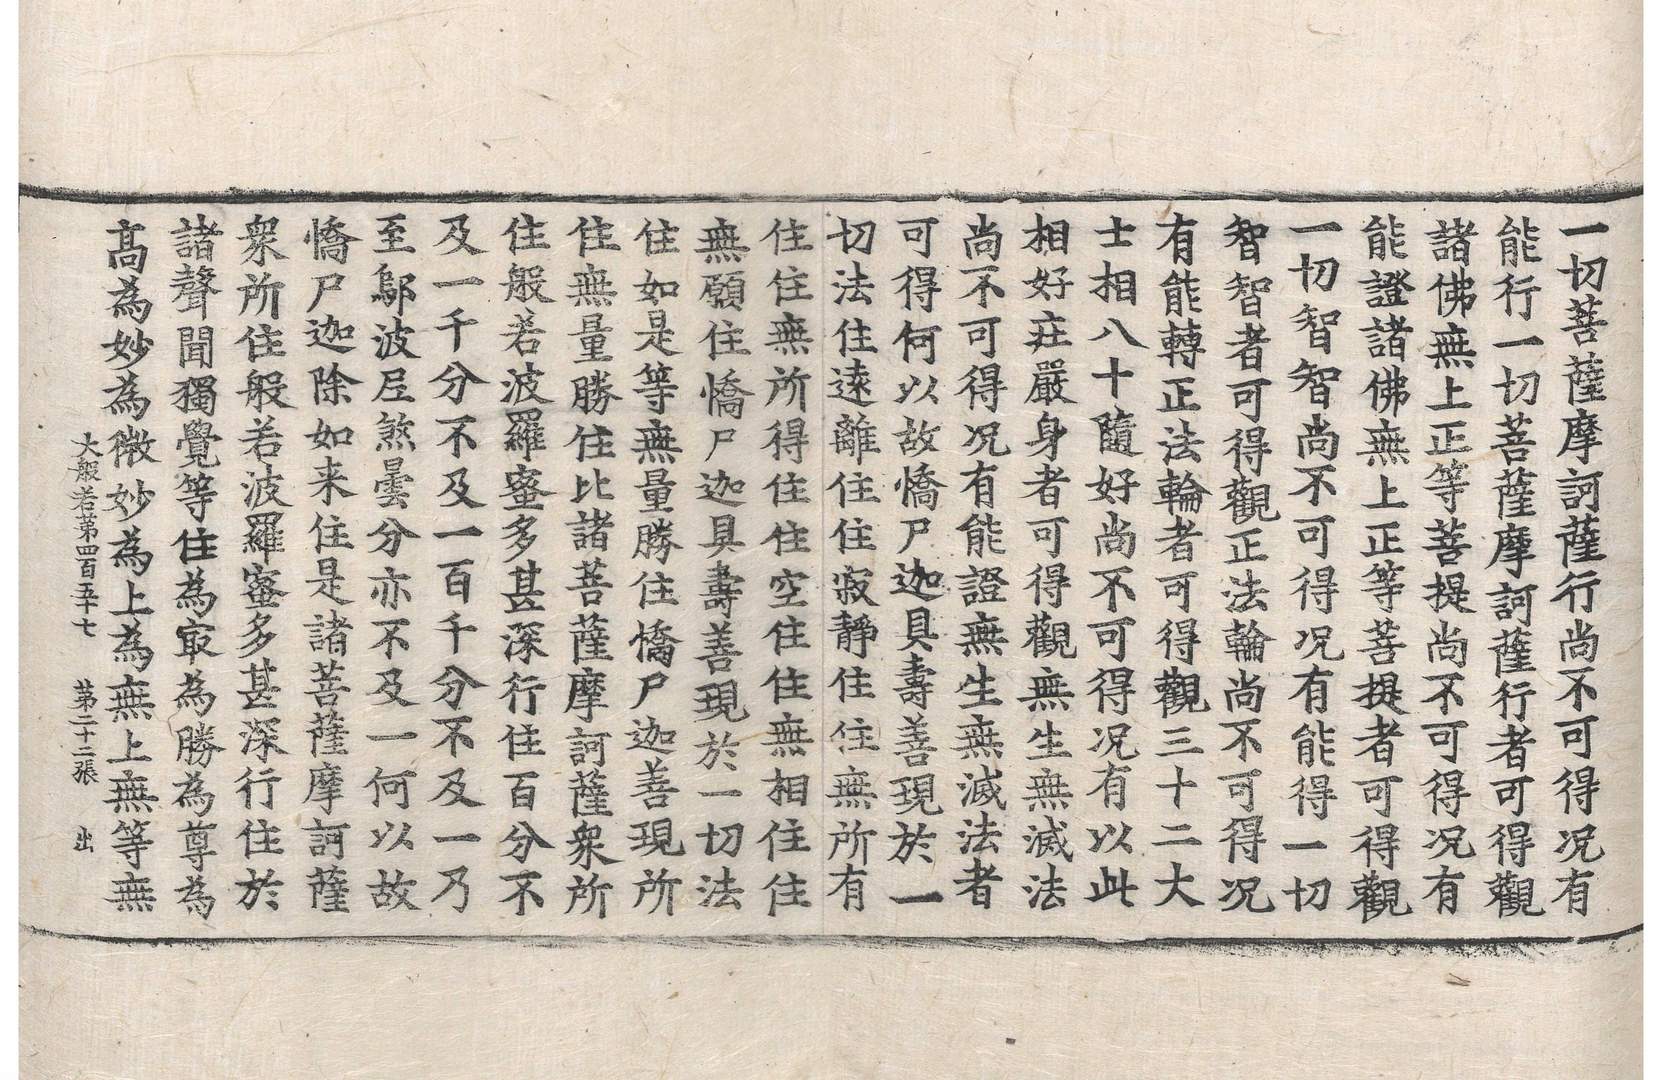 一切菩薩摩訶薩行尚不可得况有
能行一切菩薩摩訶薩行者可得觀
諸佛無上正等菩提尚不可得况有
能證諸佛無上正等菩提者可得觀
一切智智尚不可得况有能得一切
智智者可得觀正法輪尚不可得况
有能轉正法輪者可得觀三十二大
士相八十隨好尚不可得况有以此
相好疘嚴身者可得觀無生無滅法
尚不可得况有能證無生無滅法者
可得何以故憍尸迦具壽善現於一
切法住遠離住住寂靜住住無所有
住住無所得住住空住住無相住住
無願住憍尸迦具壽善現於一切法
住如是等無量勝住憍尸迦善現所
住無量勝住比諸菩薩摩訶薩衆所
住般若波羅蜜多甚深行住百分不
及一千分不及一百千分不及一乃
至鄔波尼煞曇分亦不及一何以故
憍尸迦除如来住是諸菩薩摩訶薩
衆所住般若波羅蜜多甚深行住於
諸聲聞獨覺等住為㝡為勝為尊為
髙為妙為微妙為上為無上無等無
大般若第四百五十七 第二十二張 出